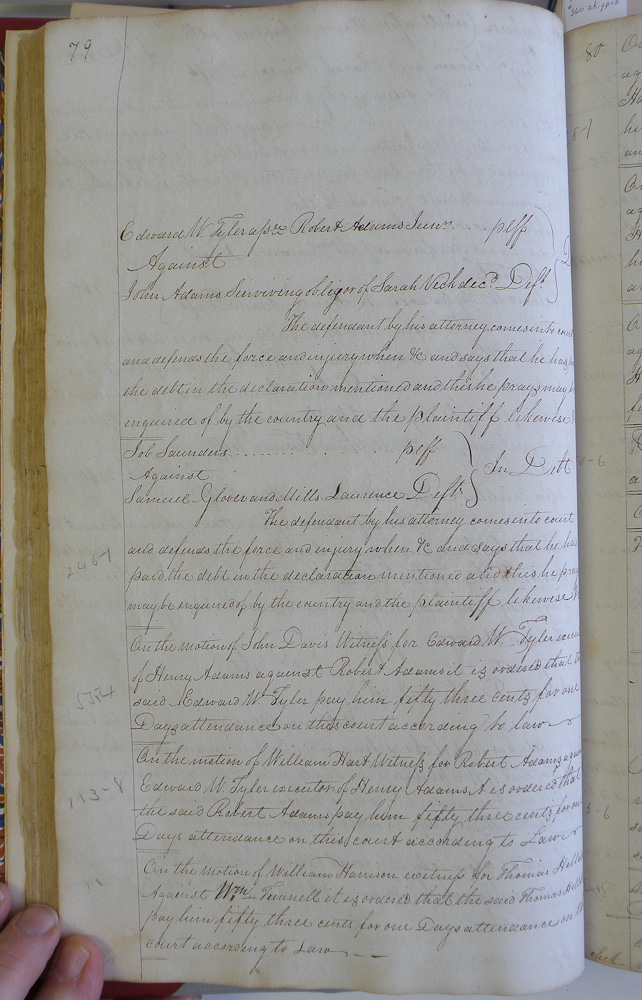 79
Edward W. Tyler assee Robert Adams Junr. . . . plff
Against
John Adams Surviving obligor of Sarah Vech decd Deft
The defendant by his attorney comes into court
and defends the force and injury when &c and says that he has
the debt in the declaration mentioned and this he prays may
enquired of by the country and the plaintiff likewise
Job Saunders . . . . . . . . plff
Against
In Debt
Samuel Glover and Mills Laurence Defts
The defendant by his attorney comes into court
and defends the force and injury when &c and says that he has
paid the debt in the declaration mentioned and this he pray
may be enquired of by the country and the plaintiff likewise
On the motion of John Davis Witness for Edward W. Tyler
of Henry Adams against Robert Adams it is ordered that
said Edward W. Tyler pay him fifty three cents for one
Days attendance on this court according to law
On the motion of William Hart Witness for Robert Adams
Edward W. Tyler executor of Henry Adams it is ordered that
the said Robert Adams pay him fifty three cents for one
Days attendance on this court according to Law
On the motion of William Harrison witness for Thomas
Against Wm. Funnell it is ordered that the said Thomas
pay him fifty three cents for one Days attendance on
court according to Law
246-1
5354
113-8
80